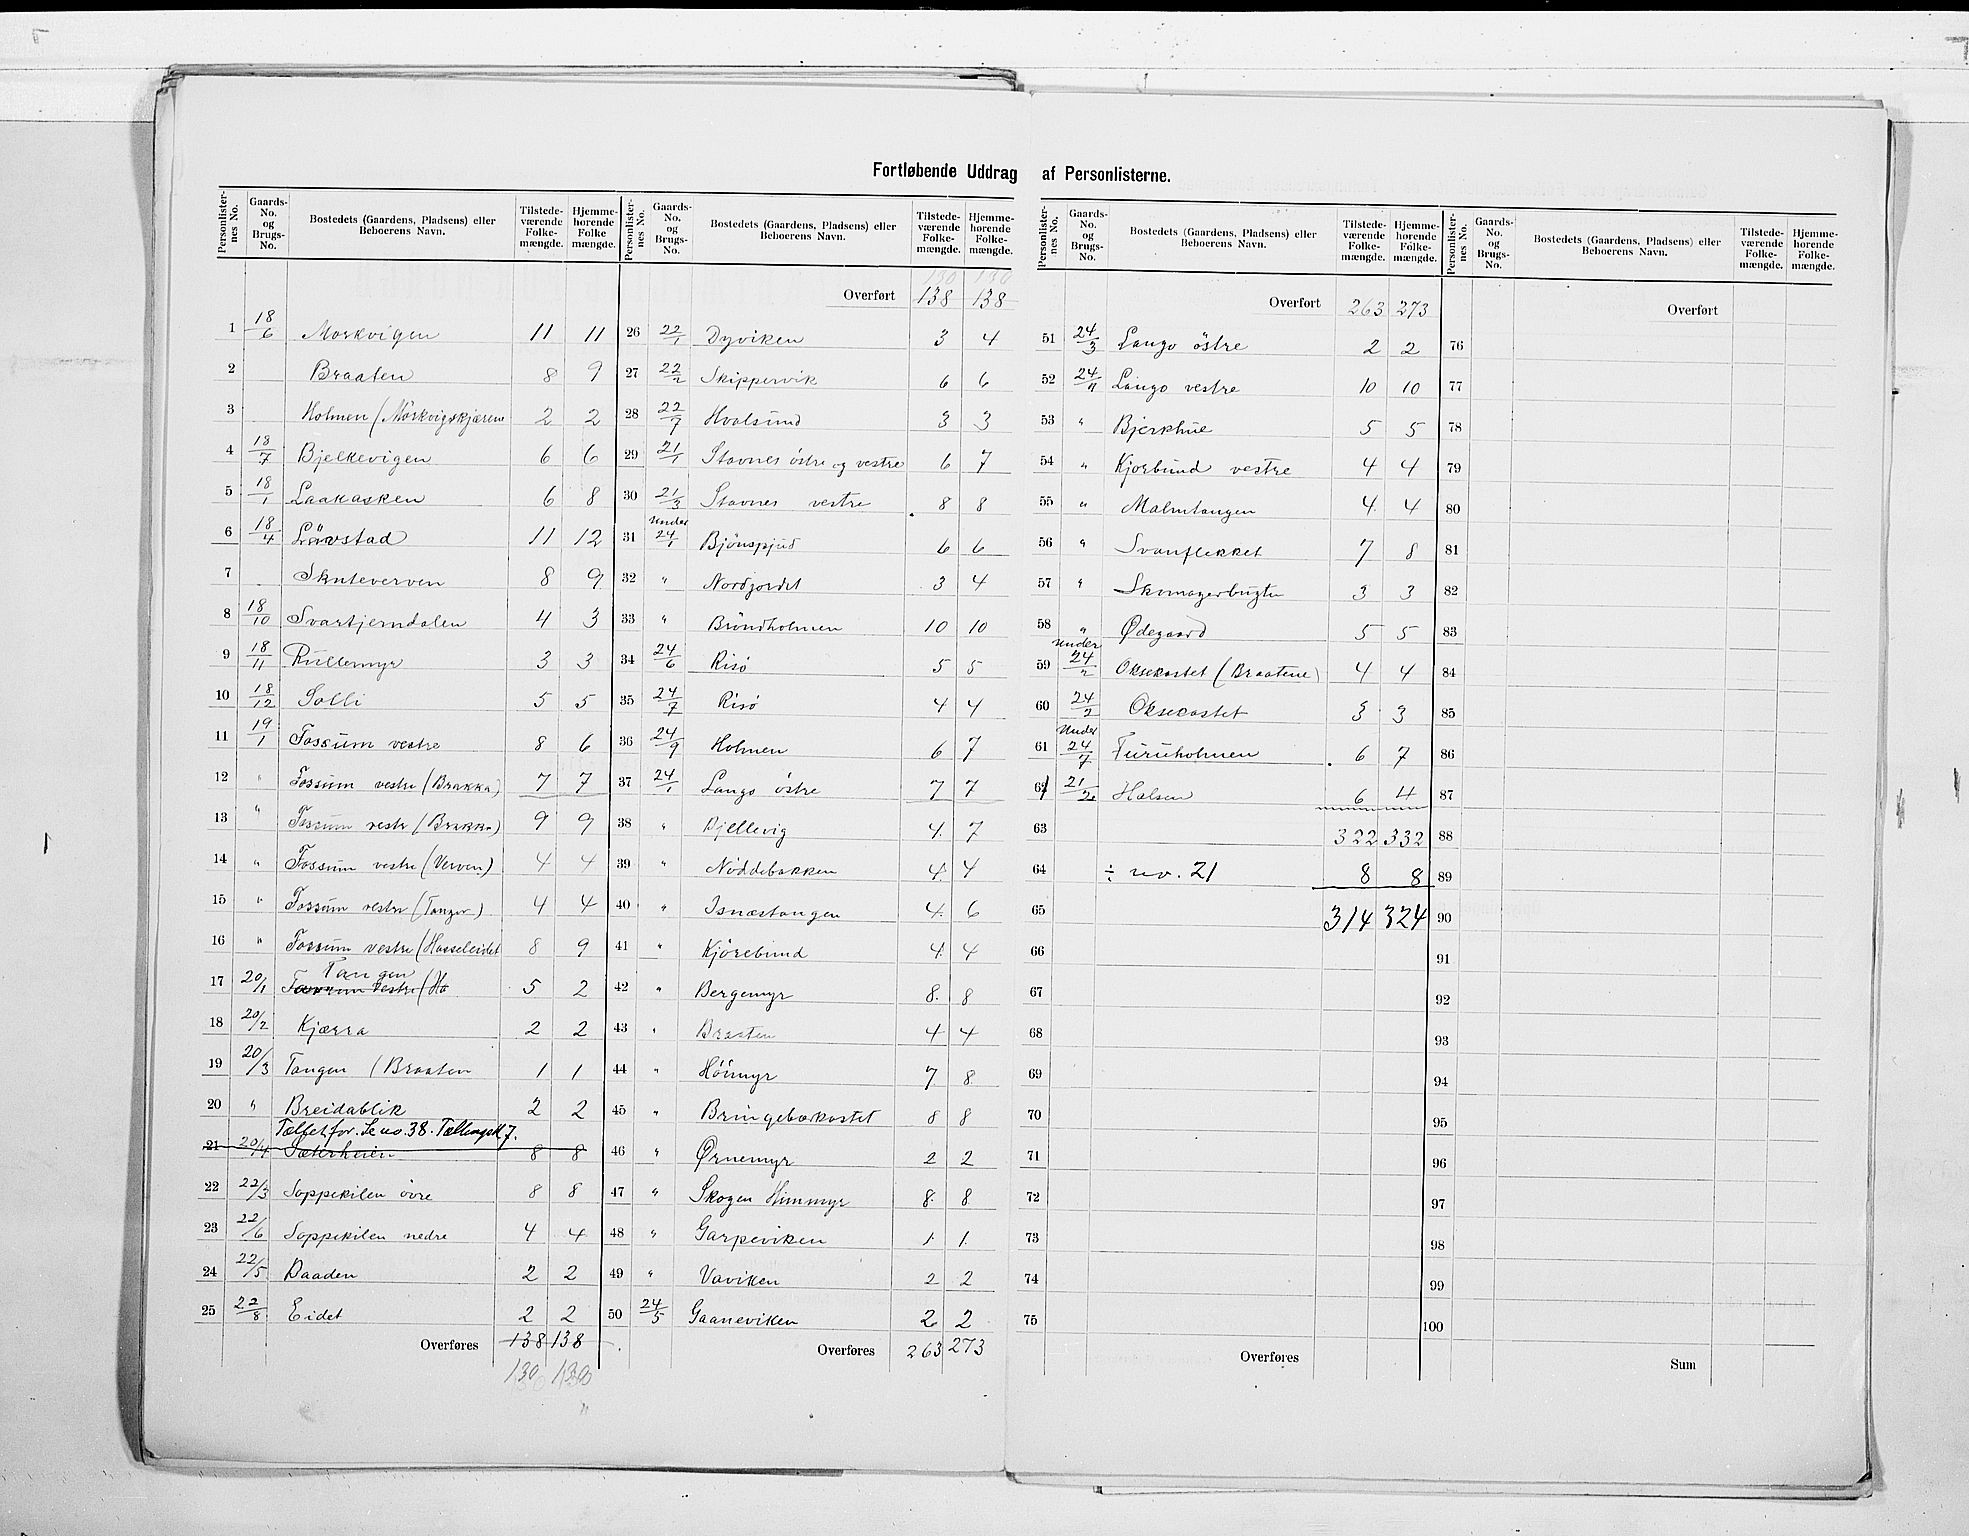 Fortløbende Uddrag af Personlisterne.
Personlister-nes No. | Gaards-No. og Brugs-No. | Bostedets (Gaardens, Pladsens) eller Beboerens Navn. | Tilstede-værende Folke-mængde. | Hjemme-hørende Folke mængde.
1 18/6 Morkvigen 11 11
2 Braaten 8 9
3 Holmen (Mörkvigskjærene 2 2
4 18/7 Bjelkevigen 6 6
5 18/1 Laakasken 6 8
6 18/4 Lövstad 11 12
7 Skuteverven 8 9
8 18/10 Svartjerndalen 4 3
9 18/11 Rullemyr 3 3
10 18/12 Solli 5 5
11 19/1 Fossum vestre 8 6
12 " Fossum vestre (Brakka) 7 7
13 " Fossum vestr (Brakka) 9 9
14 " Fossum vestre (Verven) 4 4
15 " Fossum vestre (Tanger) 4 4
16 " Fossum vestre (Hasseleidet 8 9
Tangen
17 20/1 Fossum vestre (Ha 5 2
18 20/2 Kjærra 2 2
19 20/3 Tangen (Braaten 1 1
20 " Breidablik 2 2
Tællet for. Se no. 38. Tællingsk 7.
21 20/4 Sæterheien 8 8
22 22/3 Soppekilen övre 8 8
23 22/6 Soppekilen nedre 4 4
24 22/5 Baaden 2 2
25 22/8 Eidet 2 2
Overføres 138 138
130 130
Personlister-nes No. | Gaards-No. og Brugs-No. | Bostedets (Gaardens, Pladsens) eller Beboerens Navn. | Tilstede-værende Folke-mængde. | Hjemme-hørende Folke-mængde.
130 130
Overført 138 138
26 22/1 Dyviken 3 4
27 22/2 Skippervik 6 6
28 22/7 Hvalsund 3 3
29 21/1 Stavnes östre og vestre 6 7
30 21/3 Stavnes vestre 8 8
under
31 24/1 Bjönspjud 6 6
32 " Nordjordet 3 4
33 " Bröndholmen 10 10
34 24/6 Risø 5 5
35 24/7 Risø 4 4
36 24/9 Holmen 6 7
37 24/1 Langø östre 7 7
38 " Bjellevig 4 7
39 " Nøddebakken 4 4
40 " Isnæstangen 4 6
41 " Kjörebund 4 4
42 " Bergemyr 8 8
43 " Braaten 4 4
44 " Hönmyr 7 8
45 " Bringebærkastet 8 8
46 " Ørnemyr 2 2
47 " Skogen Himmyr 8 8
48 " Garpeviken 1 1
49 " Vaviken 2 2
50 24/5 Gaaneviken 2 2
Overføres 263 273
Personlister-nes No. | Gaards-No. og Brugs-No. | Bostedets (Gaardens, Pladsens) eller Beboerens Navn. | Tilstede-værende Folke-mængde. | Hjemme-hørende Folke-mængde.
Overført 263 273
51 24/3 Langø östre 2 2
52 24/11 Langø vestre 10 10
53 " Bjerkhue 5 5
54 " Kjorbund vestre 4 4
55 " Malmtangen 4 4
56 " Svanflekket 7 8
57 " Skomagerbugtn 3 3
58 " Ødegaard 5 5
under
59 24/2 Oksekastet (Braatene) 4 4
60 24/2 Oksekastet 3 3
Under
61 24/7 Furuholmen 6 7
62 21/2 Halsen 6 4
63 322 332
64 ÷ no. 21 8 8
65 314 324
66
67
68
69
70
71
72
73
74
75
Overføres
Personlister-nes No. | Gaards-No. og Brugs-No. | Bostedets (Gaardens, Pladsens) eller Beboerens Navn. | Tilstede-værende Folke-mængde. | Hjemme-hørende Folke-mængde.
Overført
76
77
78
79
80
81
82
83
84
85
86
87
88
89
90
91
92
93
94
95
96
97
98
99
100
Sum